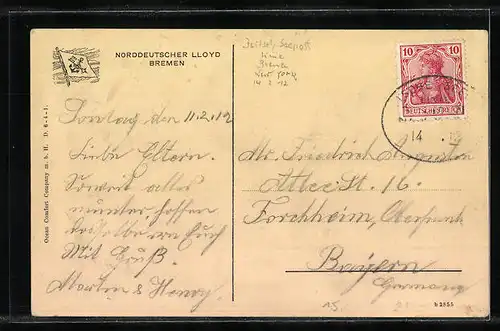 NORDDEUTSCHER LLOYD
BREMEN
Deutsch. Seepost
Linie
Bremen
New York
14 2 12
10 10
DEUTSCHES REICH
14
Sontag den 11.2.12
Liebe Eltern.
Soweit alles
munter, hoffen
von Euch
Mit Gruß.
Martin & Henry
Mr. Friedrich
Allee St. 16.
Forchheim, Oberfrank
Bayern
Germany
Ocean Comfort Company m. b. H. D. 6-4-1.
b 2855
15